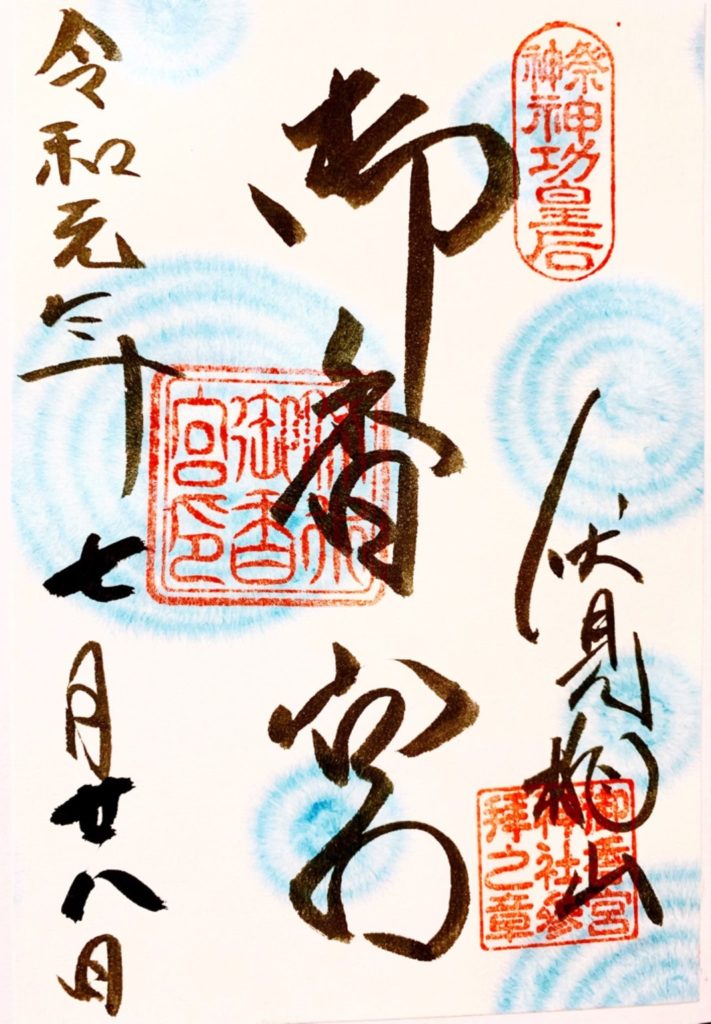 祭神
神功皇后
伏見桃山
御香宮
神社參
拜之章
御香宮
御香
宮印
令和元年七月廿八日